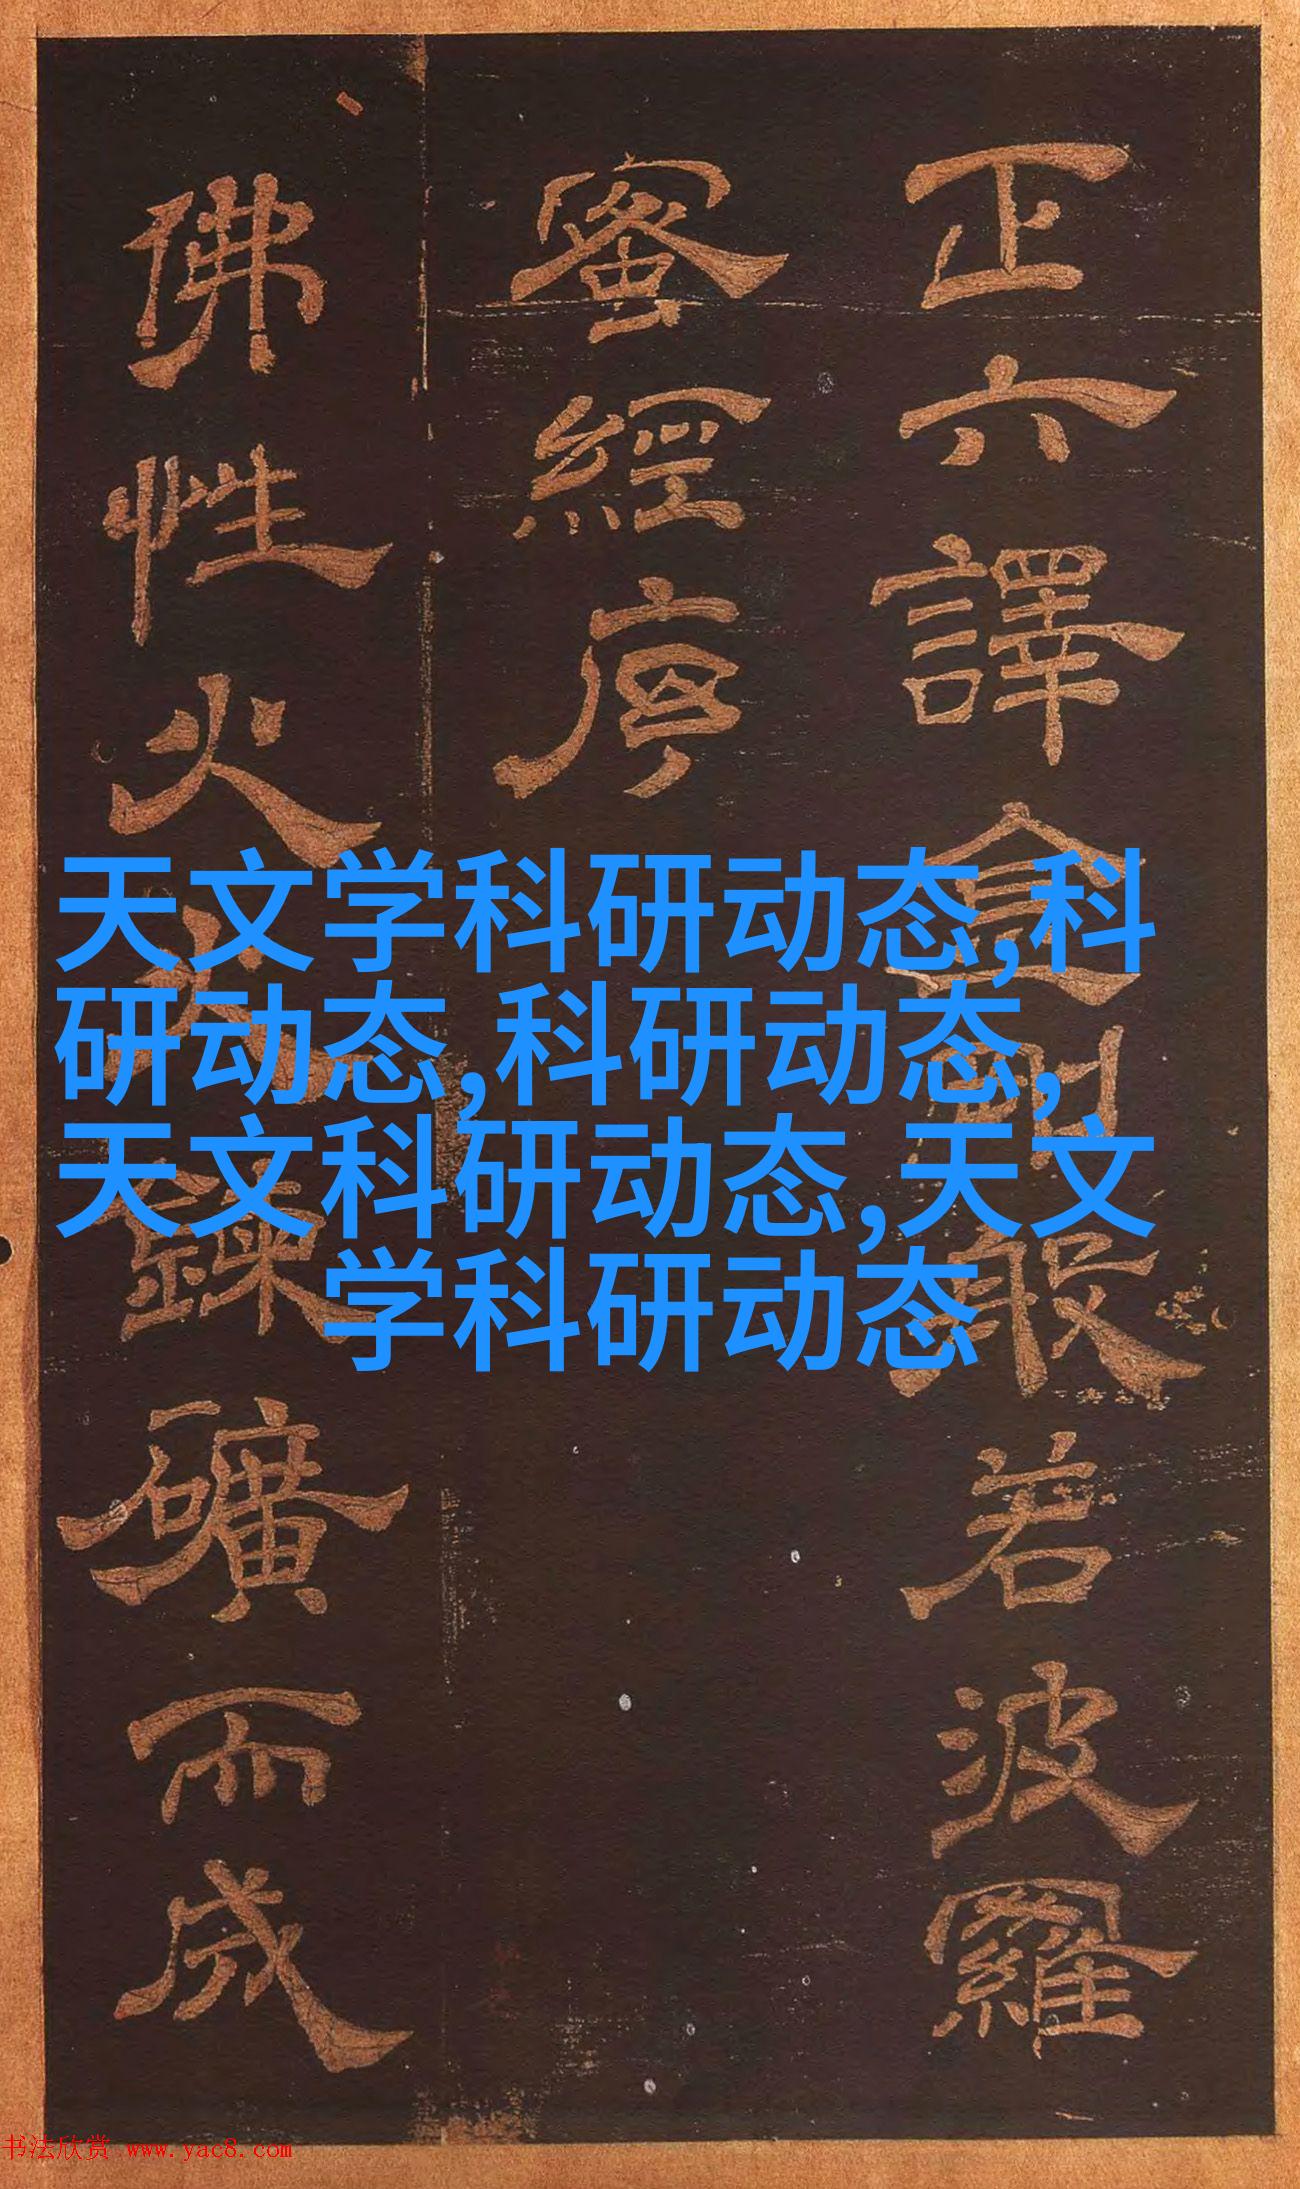 正六譯金剛般若波羅
蜜經序
佛性火鍊礦而成
天文学科研动态,科
研动态,科研动态,
天文科研动态,天文
学科研动态
书法欣赏 www.yac8.com